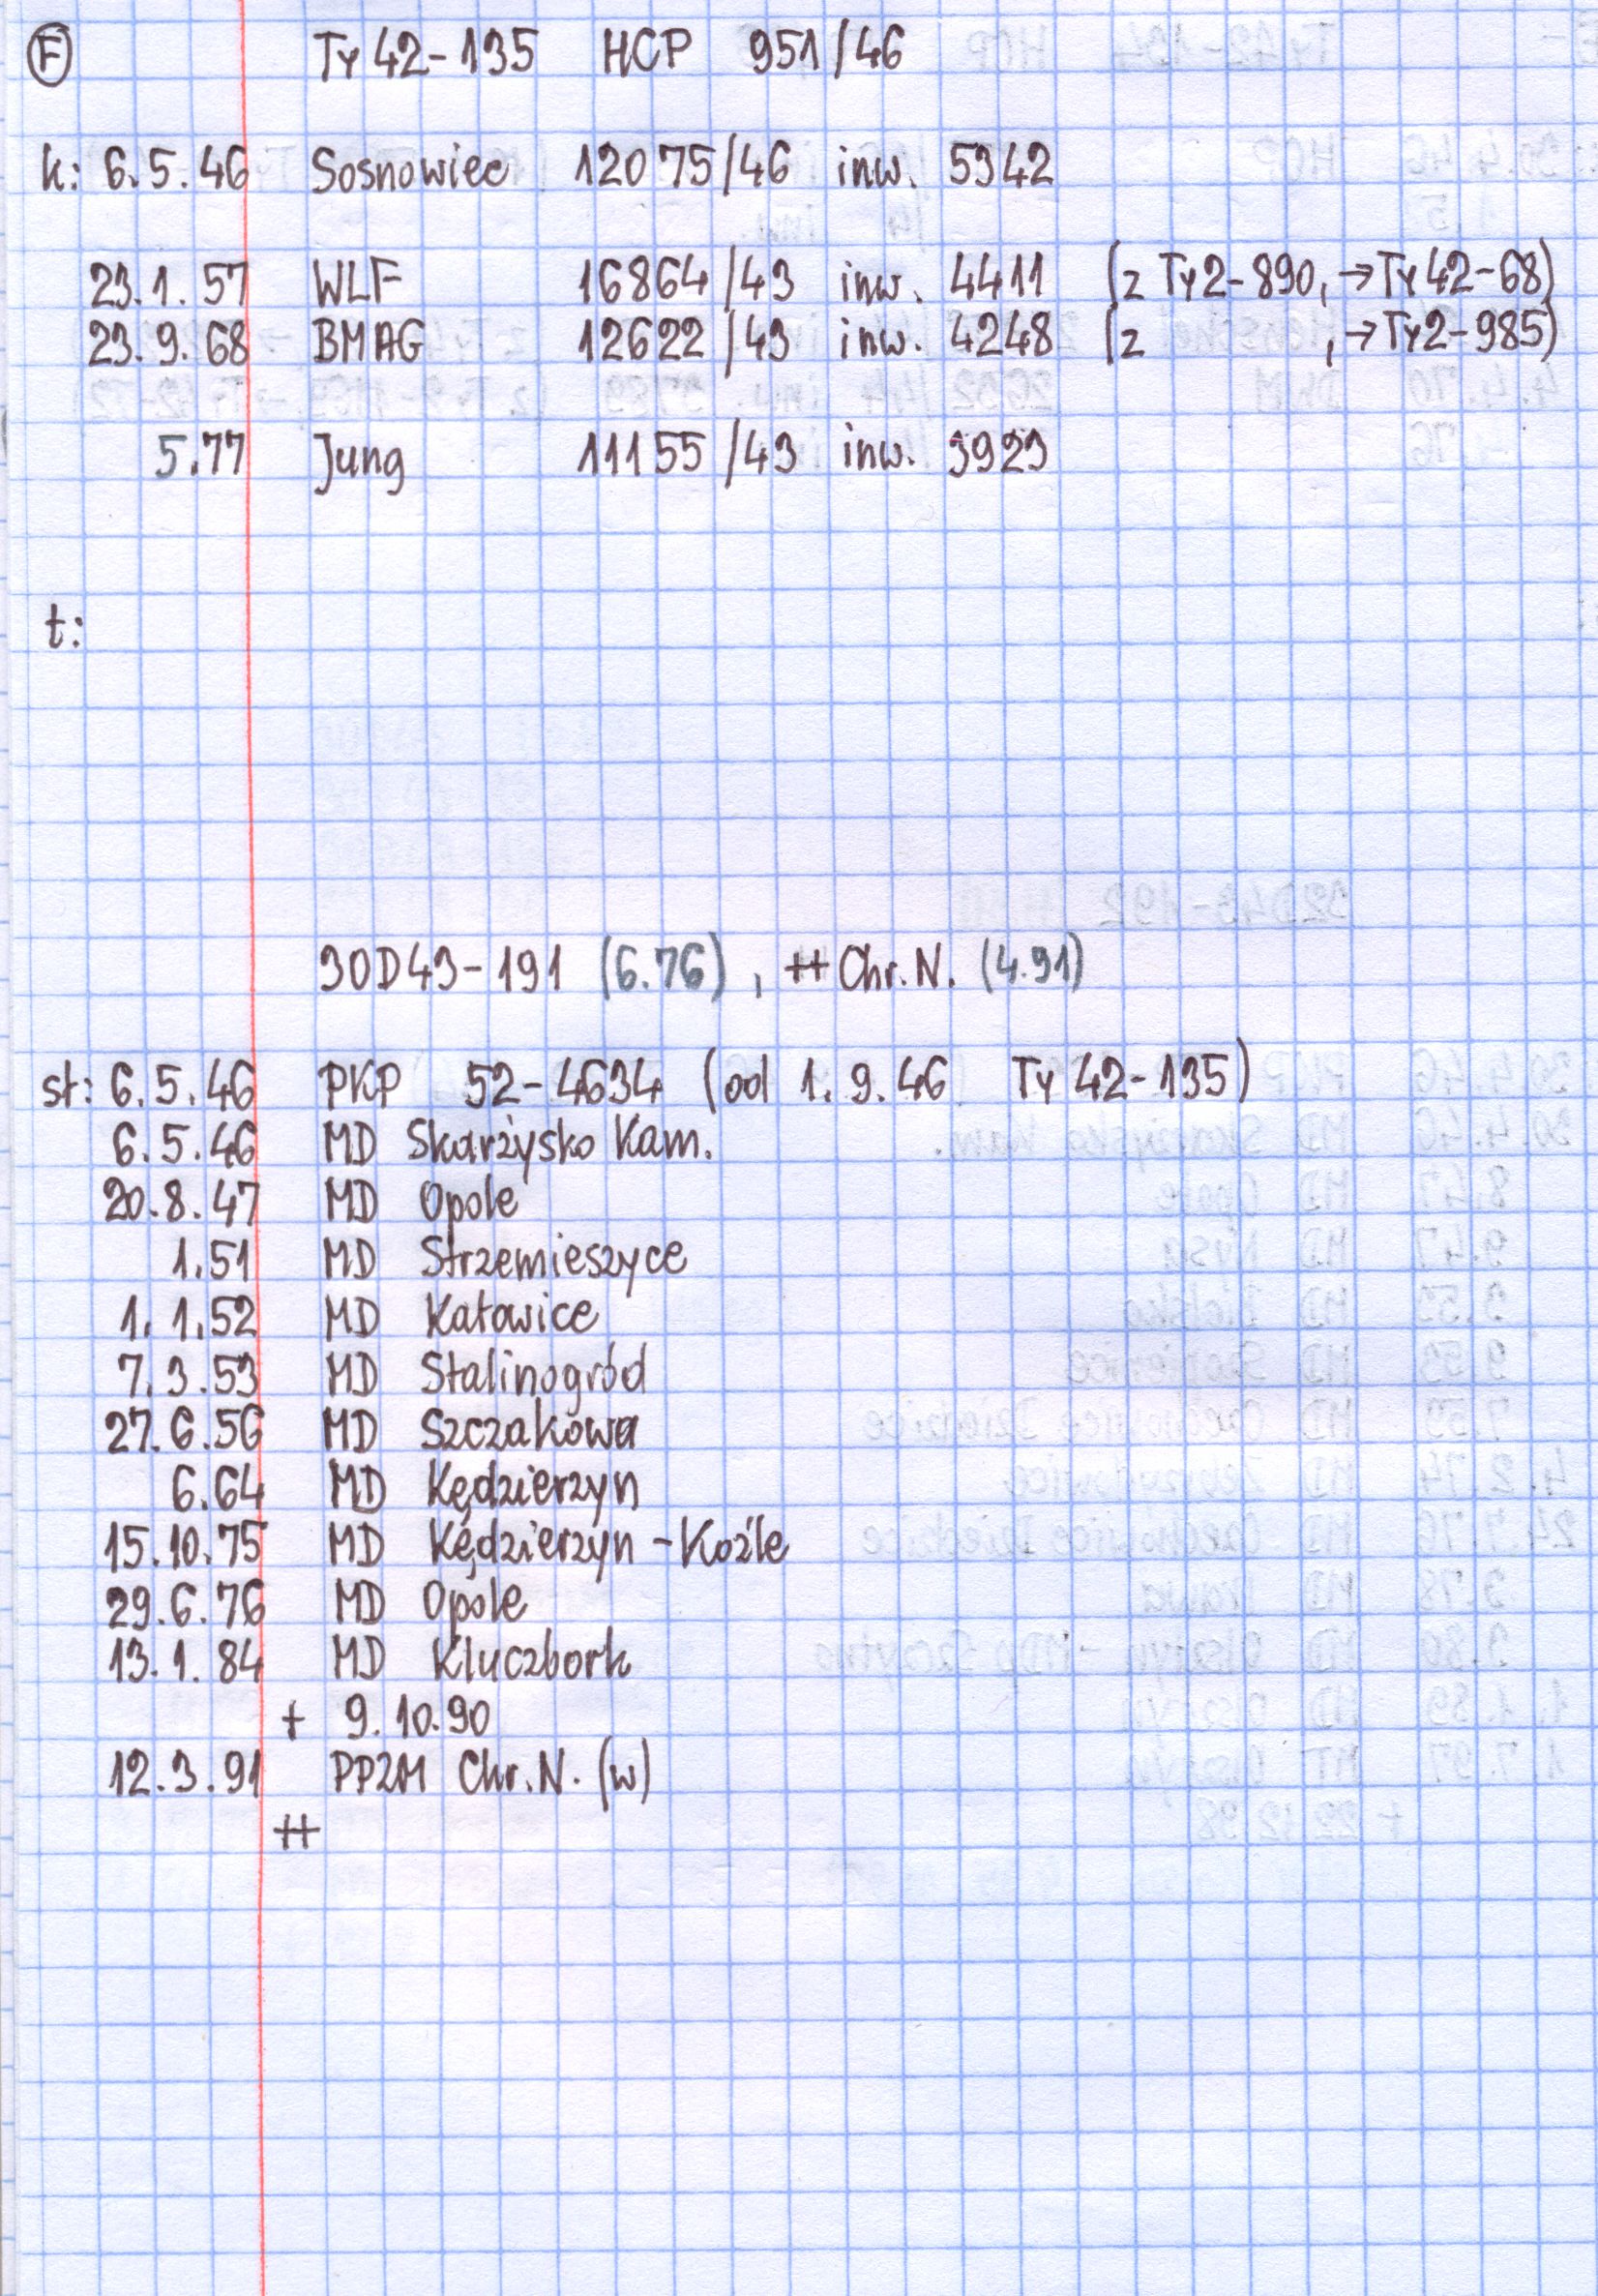 F Ty42-135 HCP 951/46
k: 6.5.46 Sosnowiec 12075/46 inw. 5342
23.1.57 WLF 16864/43 inw. 4411 (z Ty2-890, →Ty42-68)
23.9.68 BMAG 12622/43 inw. 4248 (z , →Ty2-985)
5.77 Jung 11155/43 inw. 3923
t:
30D43-191 (6.76), ++ Chr.N. (4.91)
st: 6.5.46 PKP 52-4634 (od 1.9.46 Ty42-135)
6.5.46 MD Skarżysko Kam.
20.8.47 MD Opole
1.51 MD Strzemieszyce
1.1.52 MD Katowice
7.3.53 MD Stalinogród
27.6.56 MD Szczakowa
6.64 MD Kędzierzyn
15.10.75 MD Kędzierzyn-Koźle
29.6.76 MD Opole
13.1.84 MD Kluczbork
+ 9.10.90
12.3.91 PPZM Chr.N. (w)
++